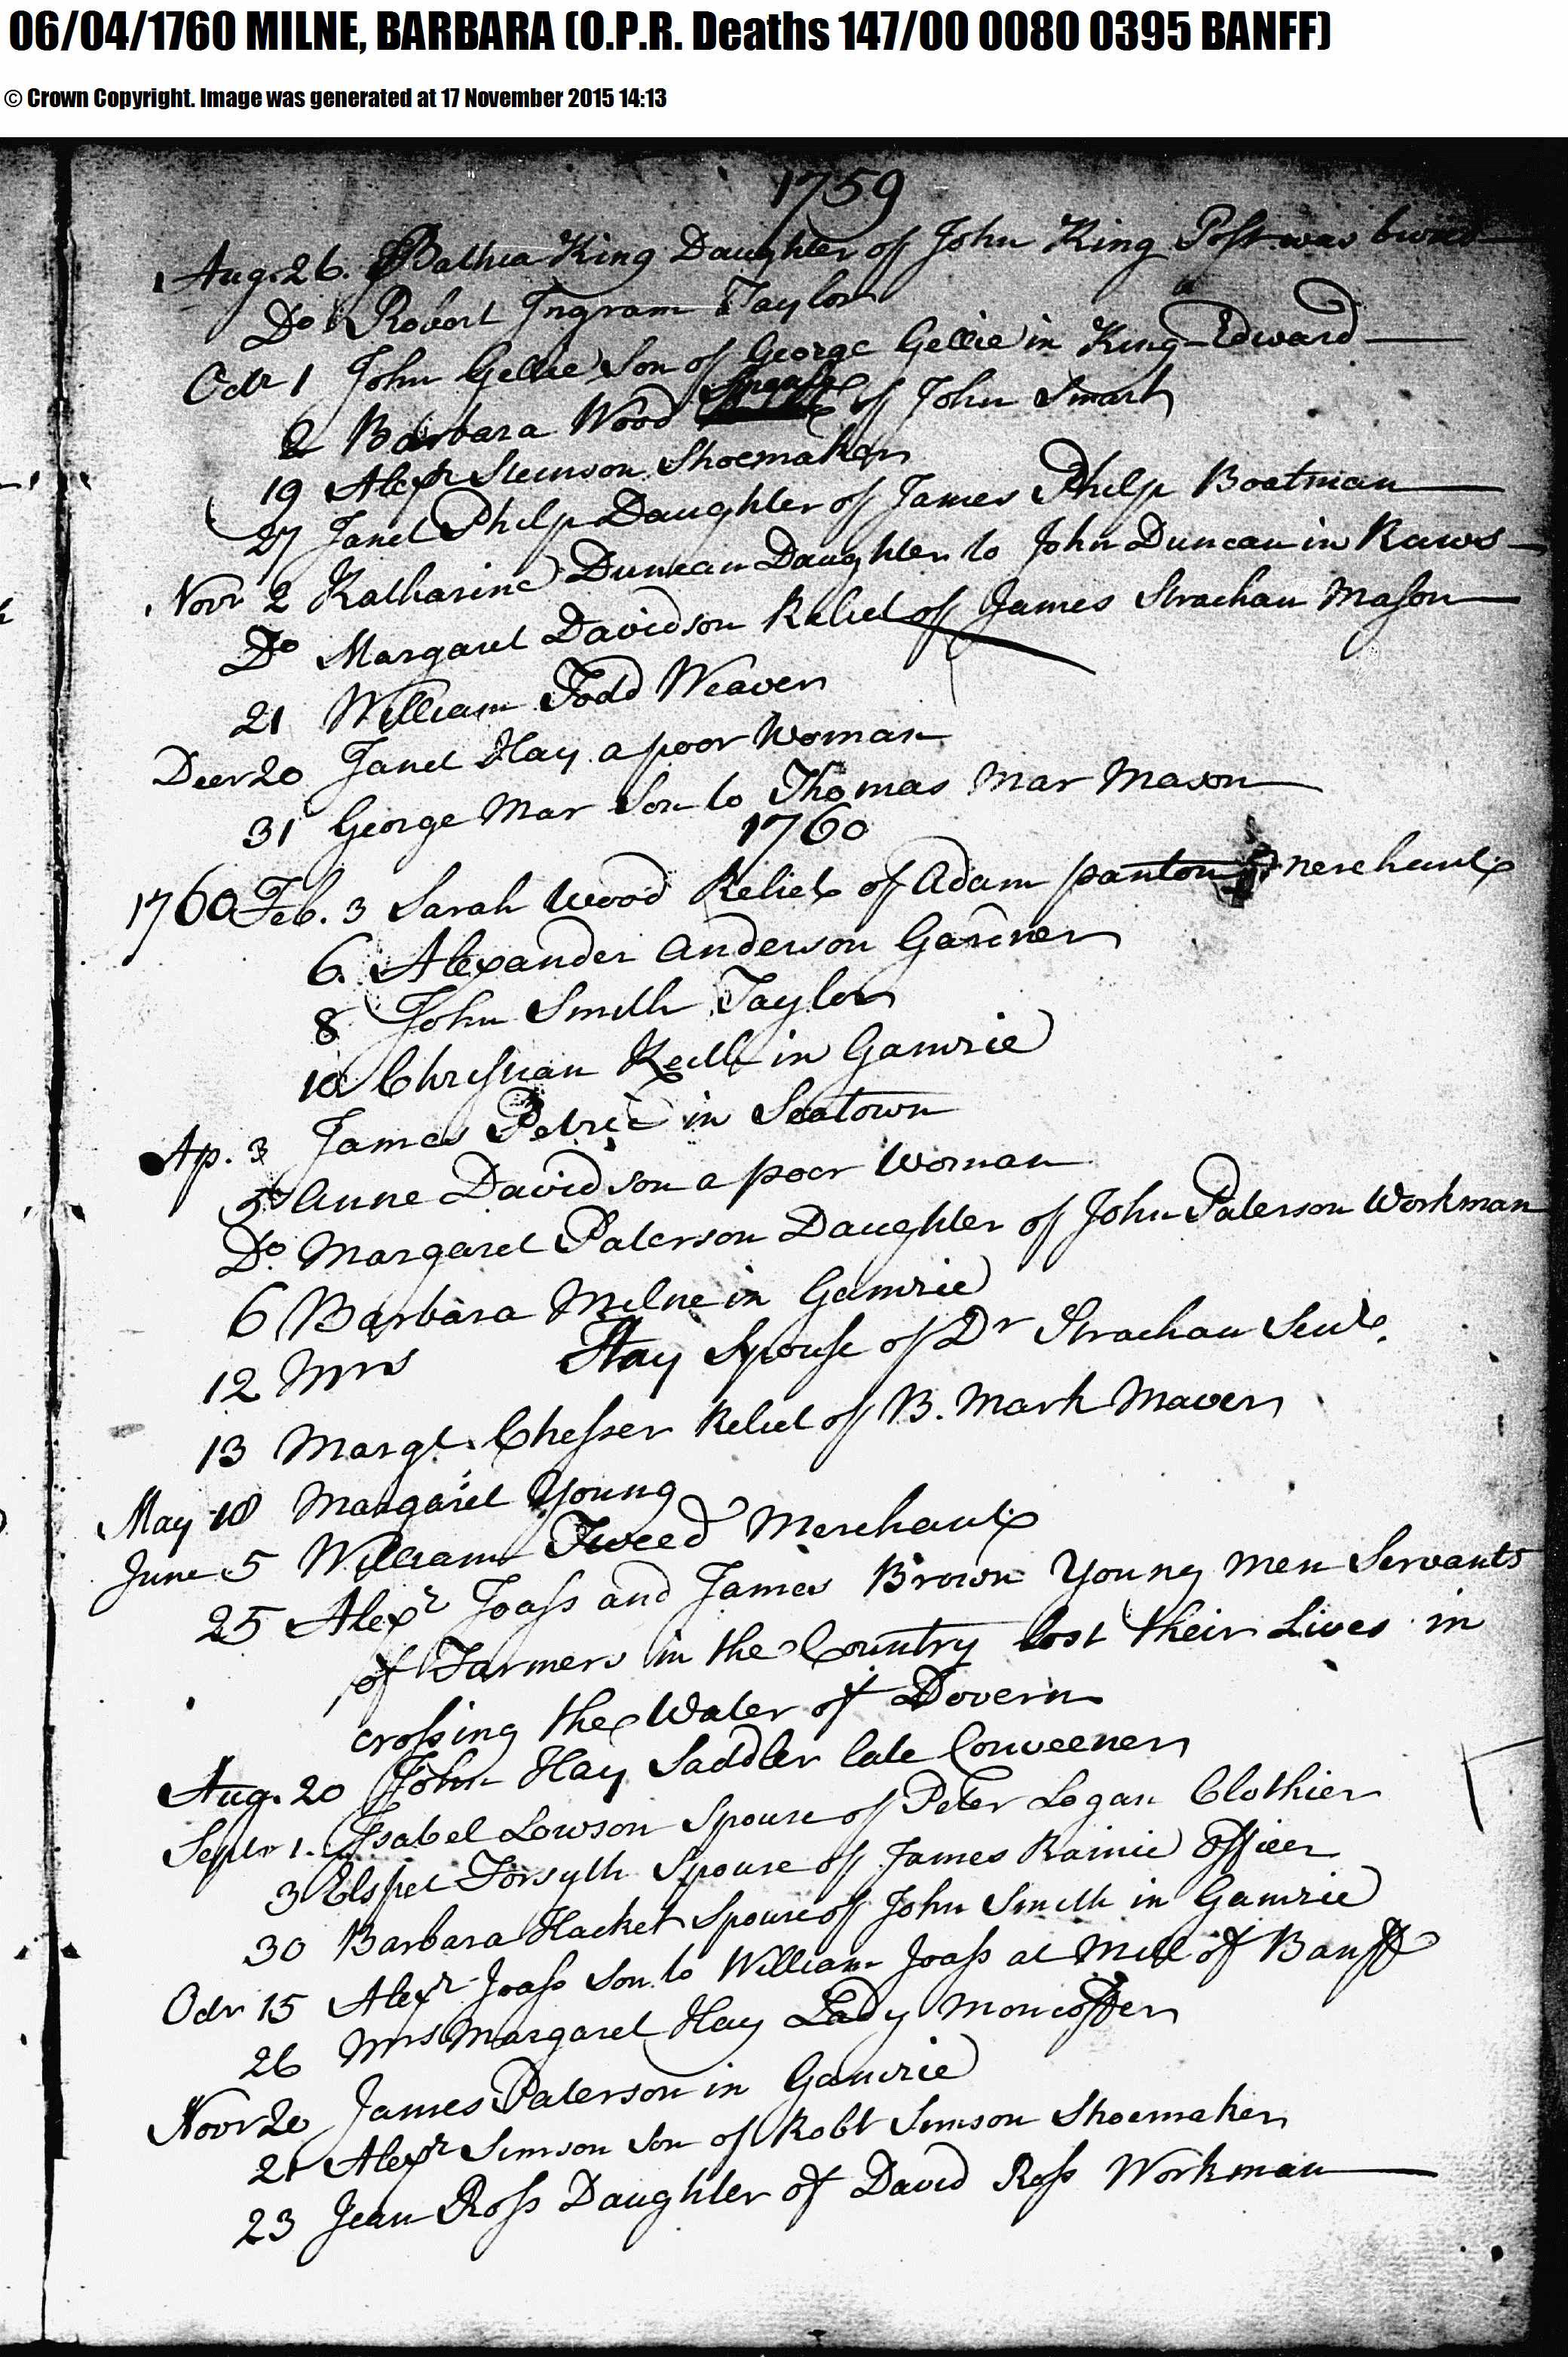 06/04/1760 MILNE, BARBARA (O.P.R. Deaths 147/00 0080 0395 BANFF)
© Crown Copyright. Image was generated at 17 November 2015 14:13
1759
Aug. 26. Bathia King Daughter of John King Post was buried
Do Robert Ingram Taylor
Octr 1 John Gellie Son of George Gellie in King Edward
2 Barbara Wood Spouse of John Smart
19 Alexr Shoemaker
27 Janet Philp Daughter of James Philp Boatman
Novr 2 Katharine Duncan Daughter to John Duncan in Raws
Do Margaret Davidson Relict of James Strachan Mason
21 William Todd Weaver
Decr 20 Janet Hay a poor Woman
31 George Mar Son to Thomas Mar Mason
1760
1760 Feb. 3 Sarah Wood Relict of Adam panton merchant
6. Alexander Anderson Gardner
8 John Smith Taylor
10 Christian Keith in Gamrie
Ap. 3 James Petrie in Seatown
5 Anne Davidson a poor Woman
Do. Margaret Paterson Daughter of John Paterson Workman
6 Barbara Milne in Gamrie
12 Mrs Hay Spouse of Dr Strachan
13 Margt. Chesser Relict of B. Mark
May 18 Margaret Young
June 5 William Tweed Merchant
25 Alexr Joass and James Brown Young men Servants
of Farmers in the Country lost their Lives in
crossing the Water of Dovern
Aug. 20 John Hay Saddler late Conveener
Septr 1. Isabel Lowson Spouse of Peter Logan Clothier
3 Elspet Forsyth Spouse of James Rainie Officer
30 Barbara Hacket Spouse of John Smith in Gamrie
Octr 15 Alexr Joass Son to William Joass at Mill of Banff
26 Mrs Margaret Hay Lady Moncoffer
Novr 20 James Paterson in Gamrie
21 Alexr Simson Son of Robt Simson Shoemaker
23 Jean Ross Daughter of David Ross Workman